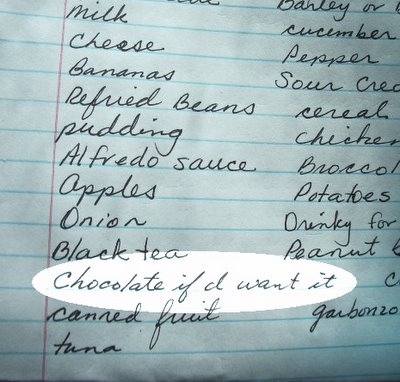 milk
cheese
Bananas
Refried Beans
pudding
Alfredo sauce
Apples
Onion
Black tea
Chocolate if I want it
canned fruit
tuna
Barley or
cucumber
Pepper
Sour
cereal
chicken
Potatoes
Drinky for
Peanut
garbonzo